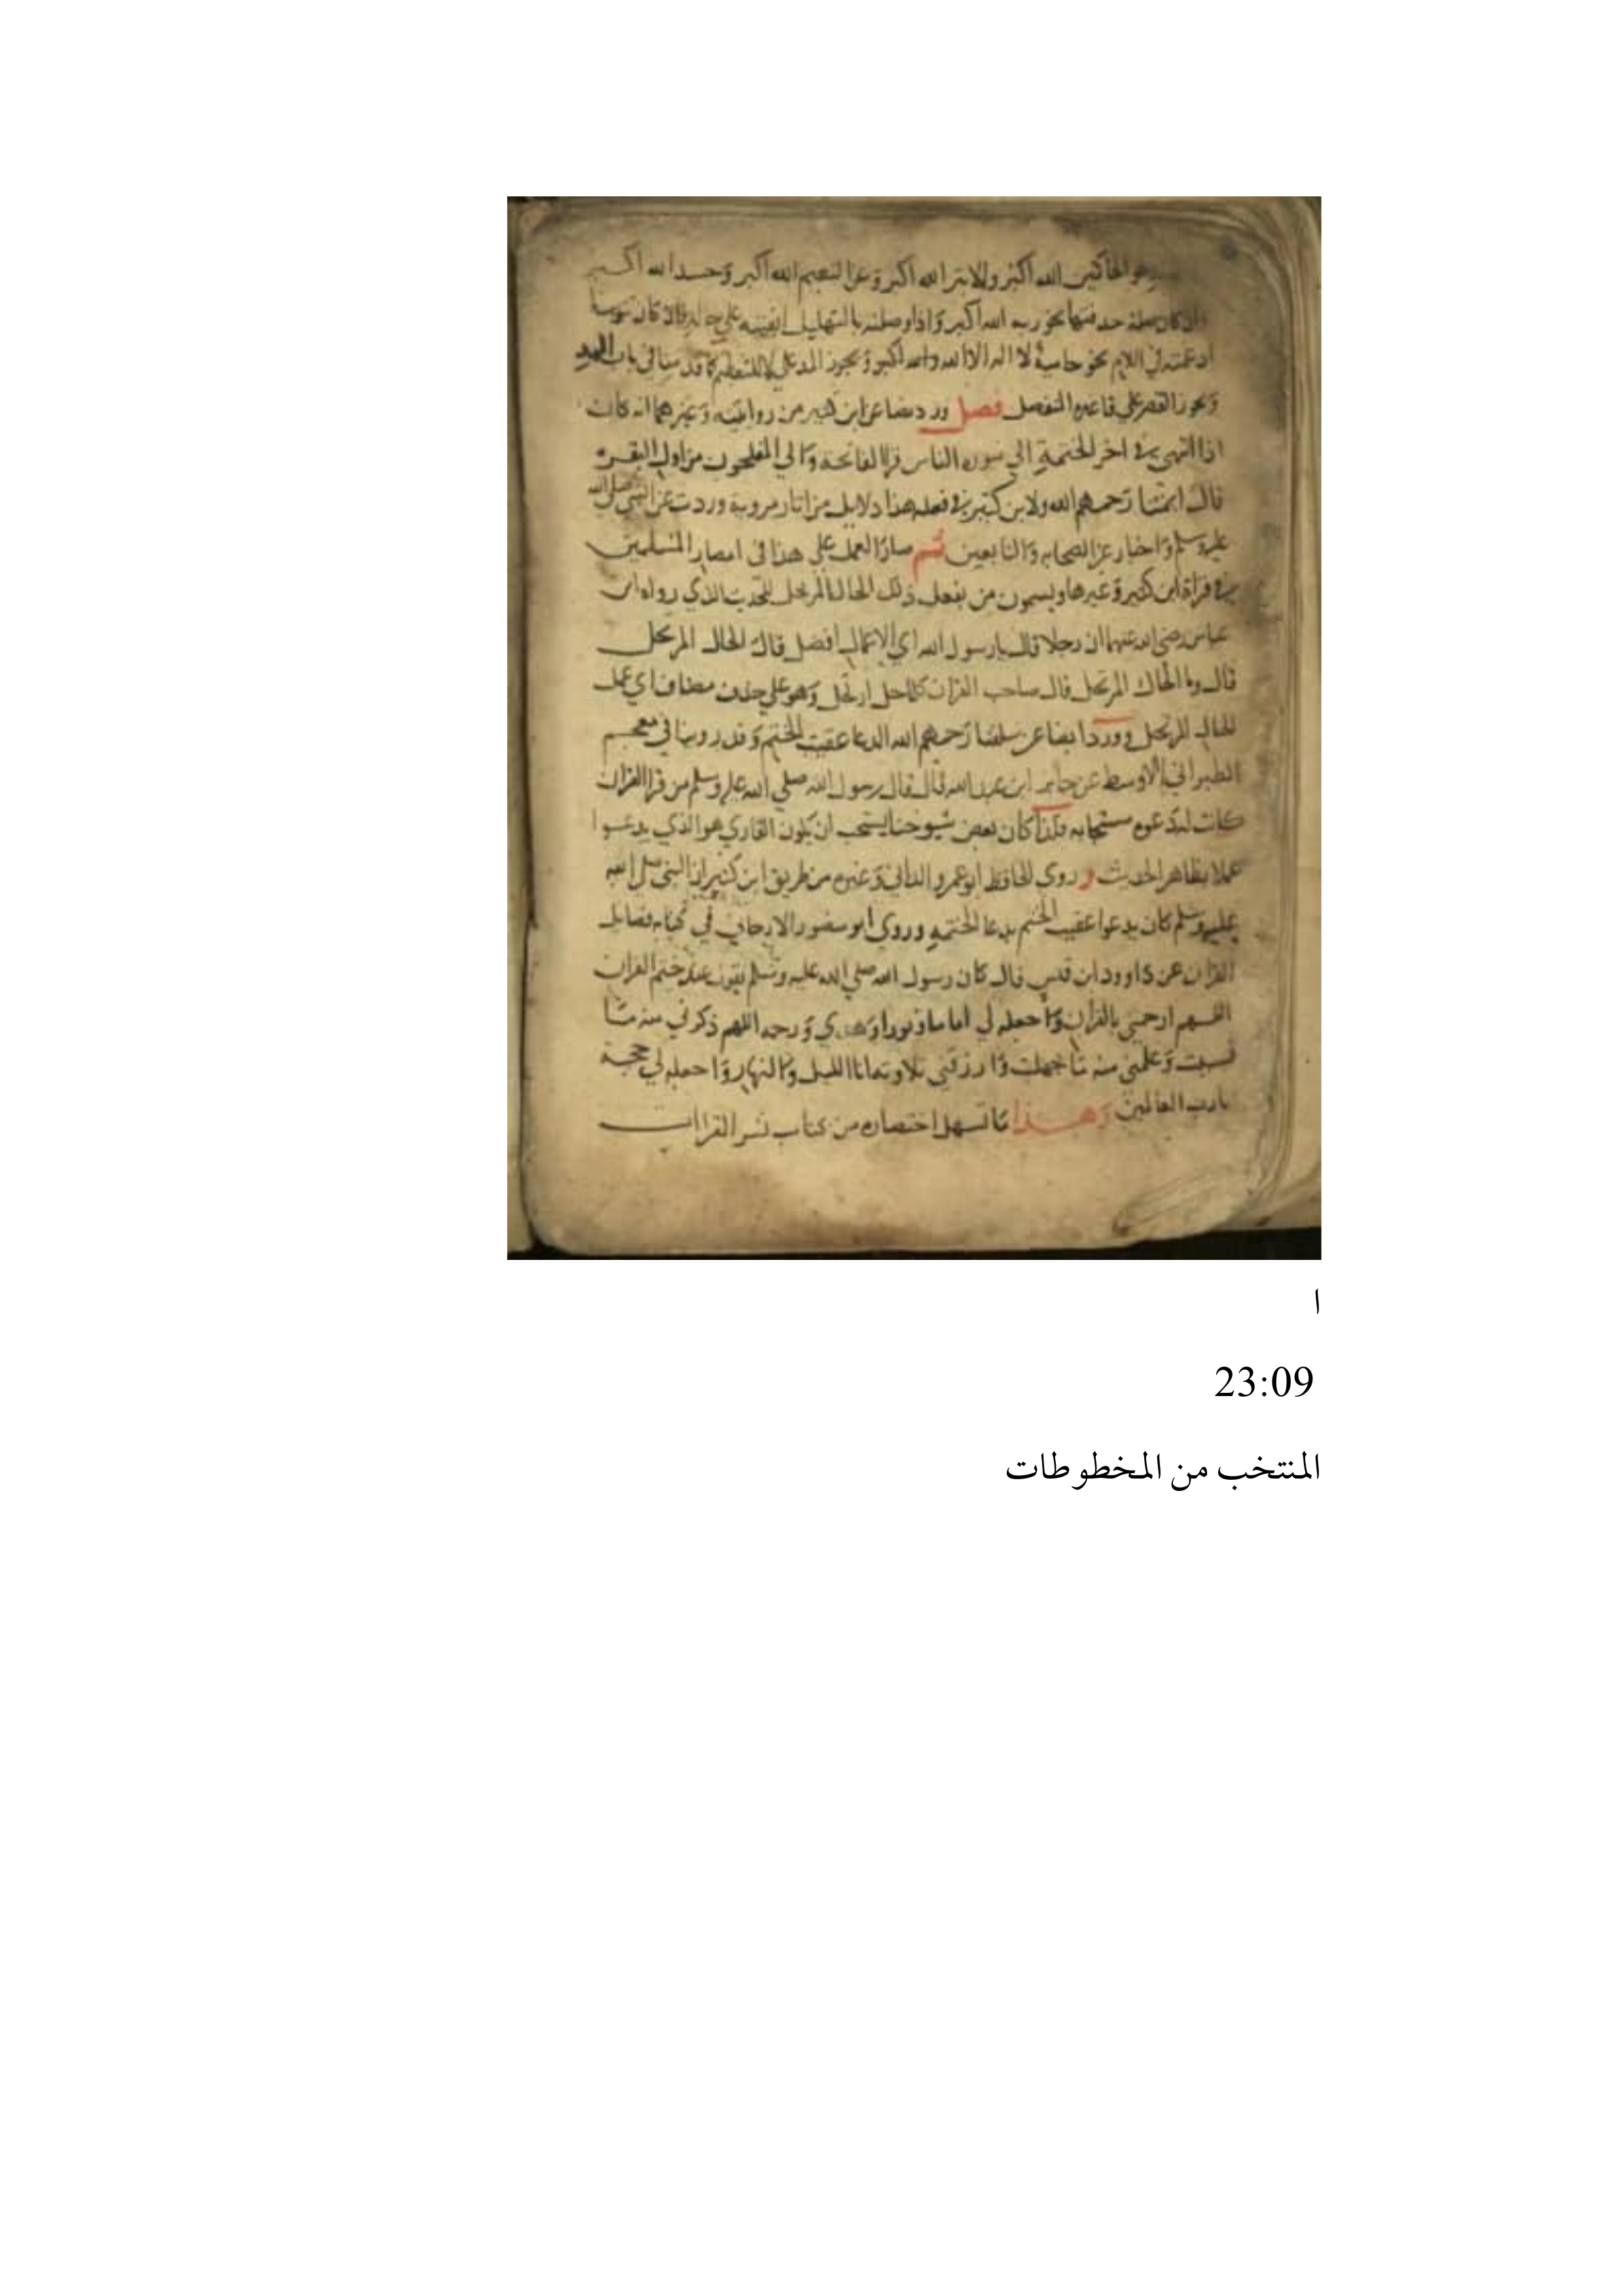 الحاكمين الله اكبر والابتر الله اكبر وعن النعيم الله اكبر وحسدا لله اكبر
وان كان صلة حذفتها نحو ربه الله اكبر واذا وصلته بالتهليل ابقيته علي حاله وان كان تنوينا
ادغمته في اللام نحو حامية لا اله الا الله والله اكبر ويجوز المد علي لا للتعظيم كما قدمنا في باب المد
ويجوز القصر علي قاعدة المنفصل فصل ورد نصا عن ابن كثير من روايتيه وغيرهما انه كان
اذا انتهى في اخر الختمة الي سورة الناس قرا الفاتحة والي المفلحون من اول البقره
قال ايمتنا رحمهم الله ولابن كثير في فعله هذا دلايل من اثار مروية وردت عن النبي صلي الله
عليه وسلم واخبار عن الصحابه والتابعين ثم صار العمل علي هذا في امصار المسلمين
في قراة ابن كثير وغيرها ويسمون من يفعل ذلك الحال المرتحل للحديث الذي رواه ابن
عباس رضي الله عنهما ان رجلا قال يا رسول الله اي الاعمال افضل قال الحال المرتحل
قال وما الحال المرتحل قال صاحب القران كلما حل ارتحل وهو علي حذف مضاف اي عمل
الحال المرتحل وورد ايضا عن سلفنا رحمهم الله الدعا عقيب الختم وقد روينا في معجم
الطبراني الاوسط عن جابر ابن عبد الله قال قال رسول الله صلي الله عليه وسلم من قرا القران
كانت له دعوه مستجابه ولذا كان بعض شيوخنا يستحب ان يكون القاري هو الذي يدعوا
عملا بظاهر الحديث وروي الحافظ ابو عمرو الداني وغيره من طريق ابن كثير ان النبي صلى الله
عليه وسلم كان يدعوا عقيب الختم بدعا الختمه وروي ابو منصور الارجاني في كتابه فضايل
القران عن داوود ابن قيس قال كان رسول الله صلي الله عليه وسلم يقول عند ختم القران
اللهم ارحمني بالقران واجعله لي اماما ونورا وهدي ورحمه اللهم ذكرني منه ما
نسيت وعلمني منه ما جهلت وارزقني تلاوته انا الليل والنهار واجعله لي حجة
يا رب العالمين وهذا ما تسهل اختصاره من كتاب نشر القراات
ا
23:09
المنتخب من المخطوطات